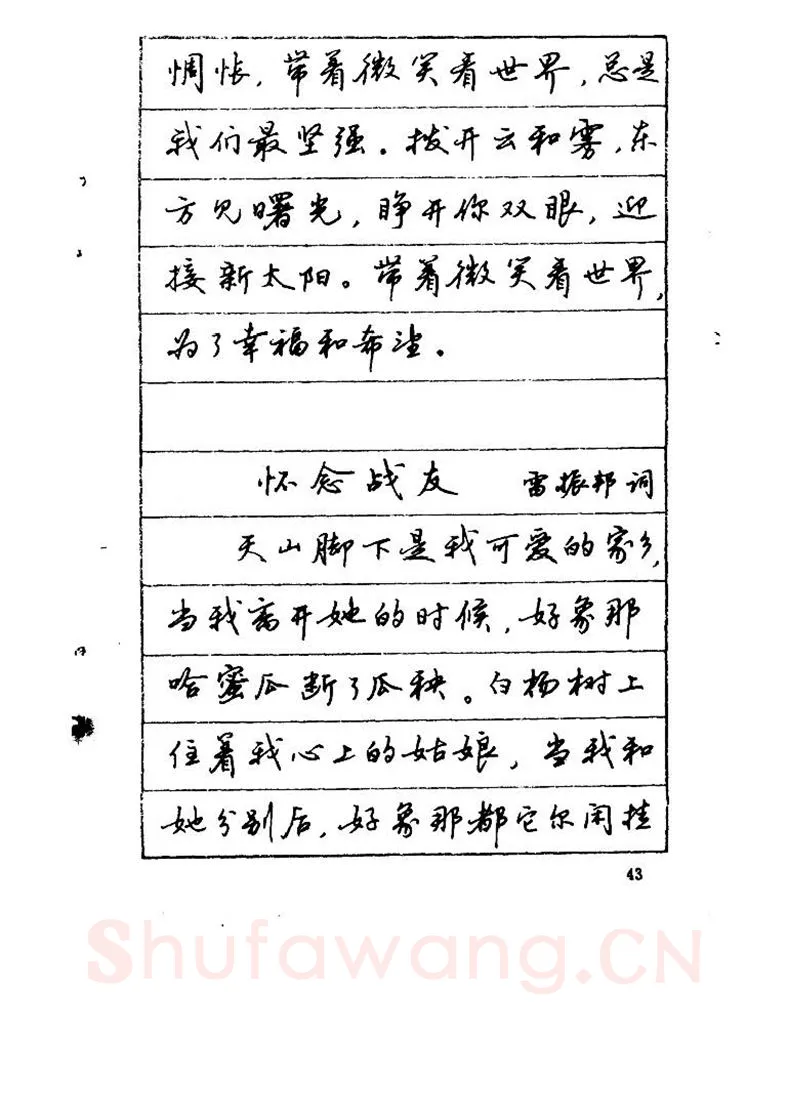 惆怅，带着微笑看世界，总是
我们最坚强。拨开云和雾，东
方见曙光，睁开你双眼，迎
接新太阳。带着微笑看世界，
为了幸福和希望。
怀念战友 雷振邦词
天山脚下是我可爱的家乡，
当我离开她的时候，好象那
哈蜜瓜断了瓜秧。白杨树上
住着我心上的姑娘，当我和
她分别后，好象那都它尔闲挂
43
Shufawang.CN